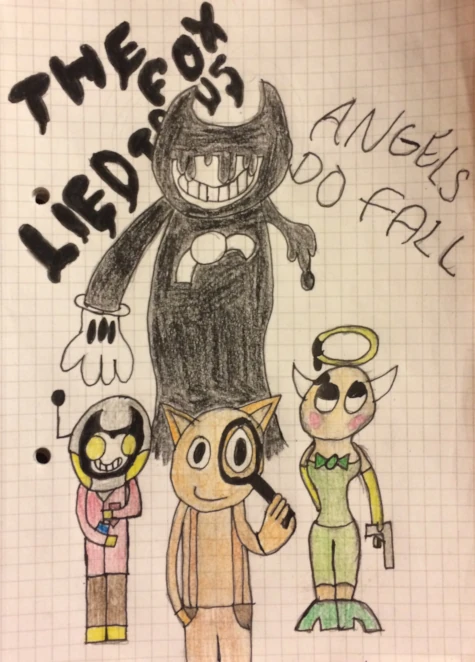 THE FOX
LIED TO US
ANGELS
DO FALL